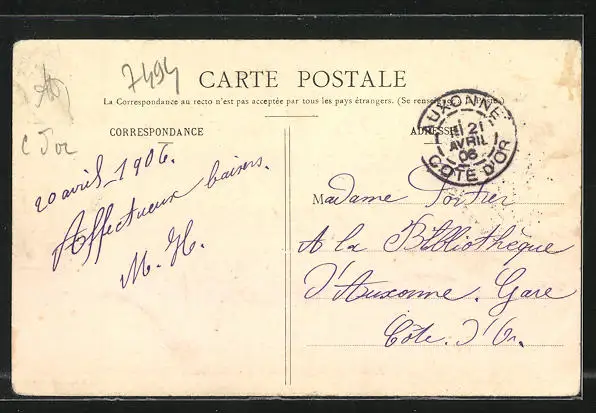 7494
CARTE POSTALE
La Correspondance au recto n'est pas acceptée par tous les pays étrangers. (Se renseigner à la Poste)
C d'or
CORRESPONDANCE
ADRESSE
AUXONNE
21
AVRIL
06
COTE D'OR
20 avril 1906.
Affectueux baisers.
M. H.
Madame Poitier
A la Bibliothèque
d'Auxonne. Gare
Côte. d'Or.